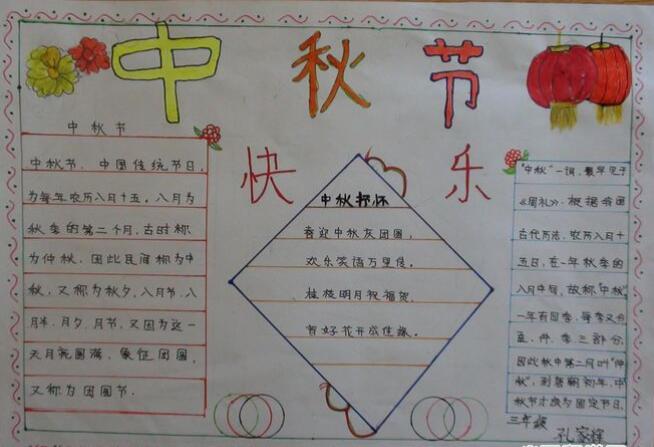 中秋节
快 乐
中秋节
中秋节、中国传统节日,
为每年农历八月十五。八月为
秋季的第二个月,古时称
为仲秋,因此民间称为中
秋,又称为秋夕,八月节,八
月半,月夕,月节,又因为这一
天月亮圆满,象征团圆,
又称为团圆节.
中秋抒怀
喜迎中秋庆团圆,
欢乐笑语万里传。
桂枝明月祝福贺,
智好花开成佳缘。
“中秋”一词,最早见于
《周礼》.根据我国
古代历法,农历八月十
五日,在一年秋季的
八月中旬,故称“中秋”
一年有四季,每季又分
孟,仲,季三部分,
因此秋中第二月叫“仲
秋”,到唐朝初年,中
秋节才成为固定节日.
三年级